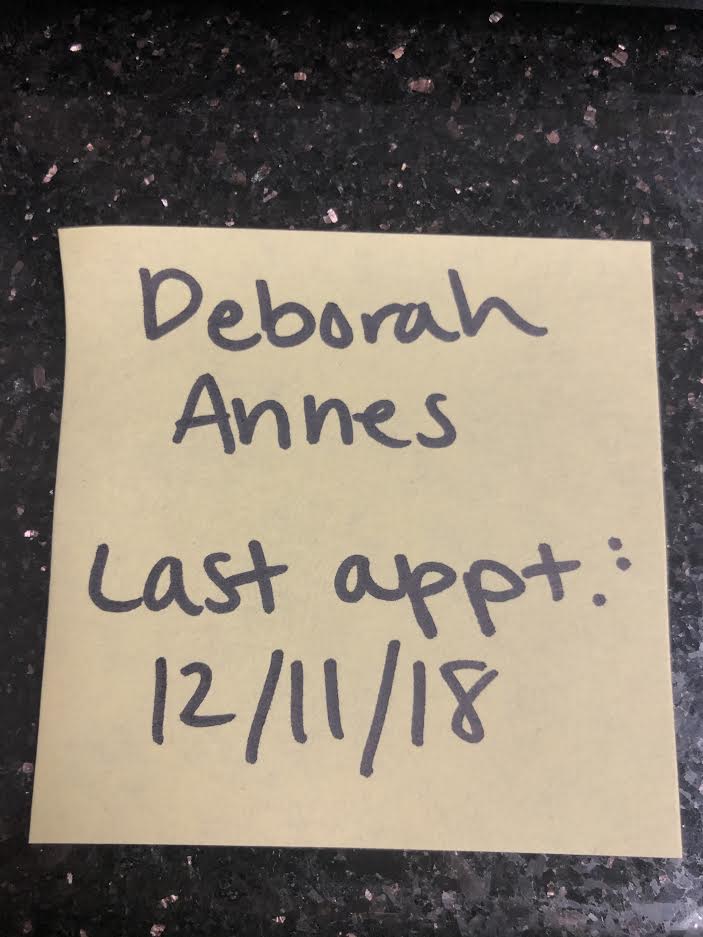 Deborah
Annes
Last appt.:
12/11/18